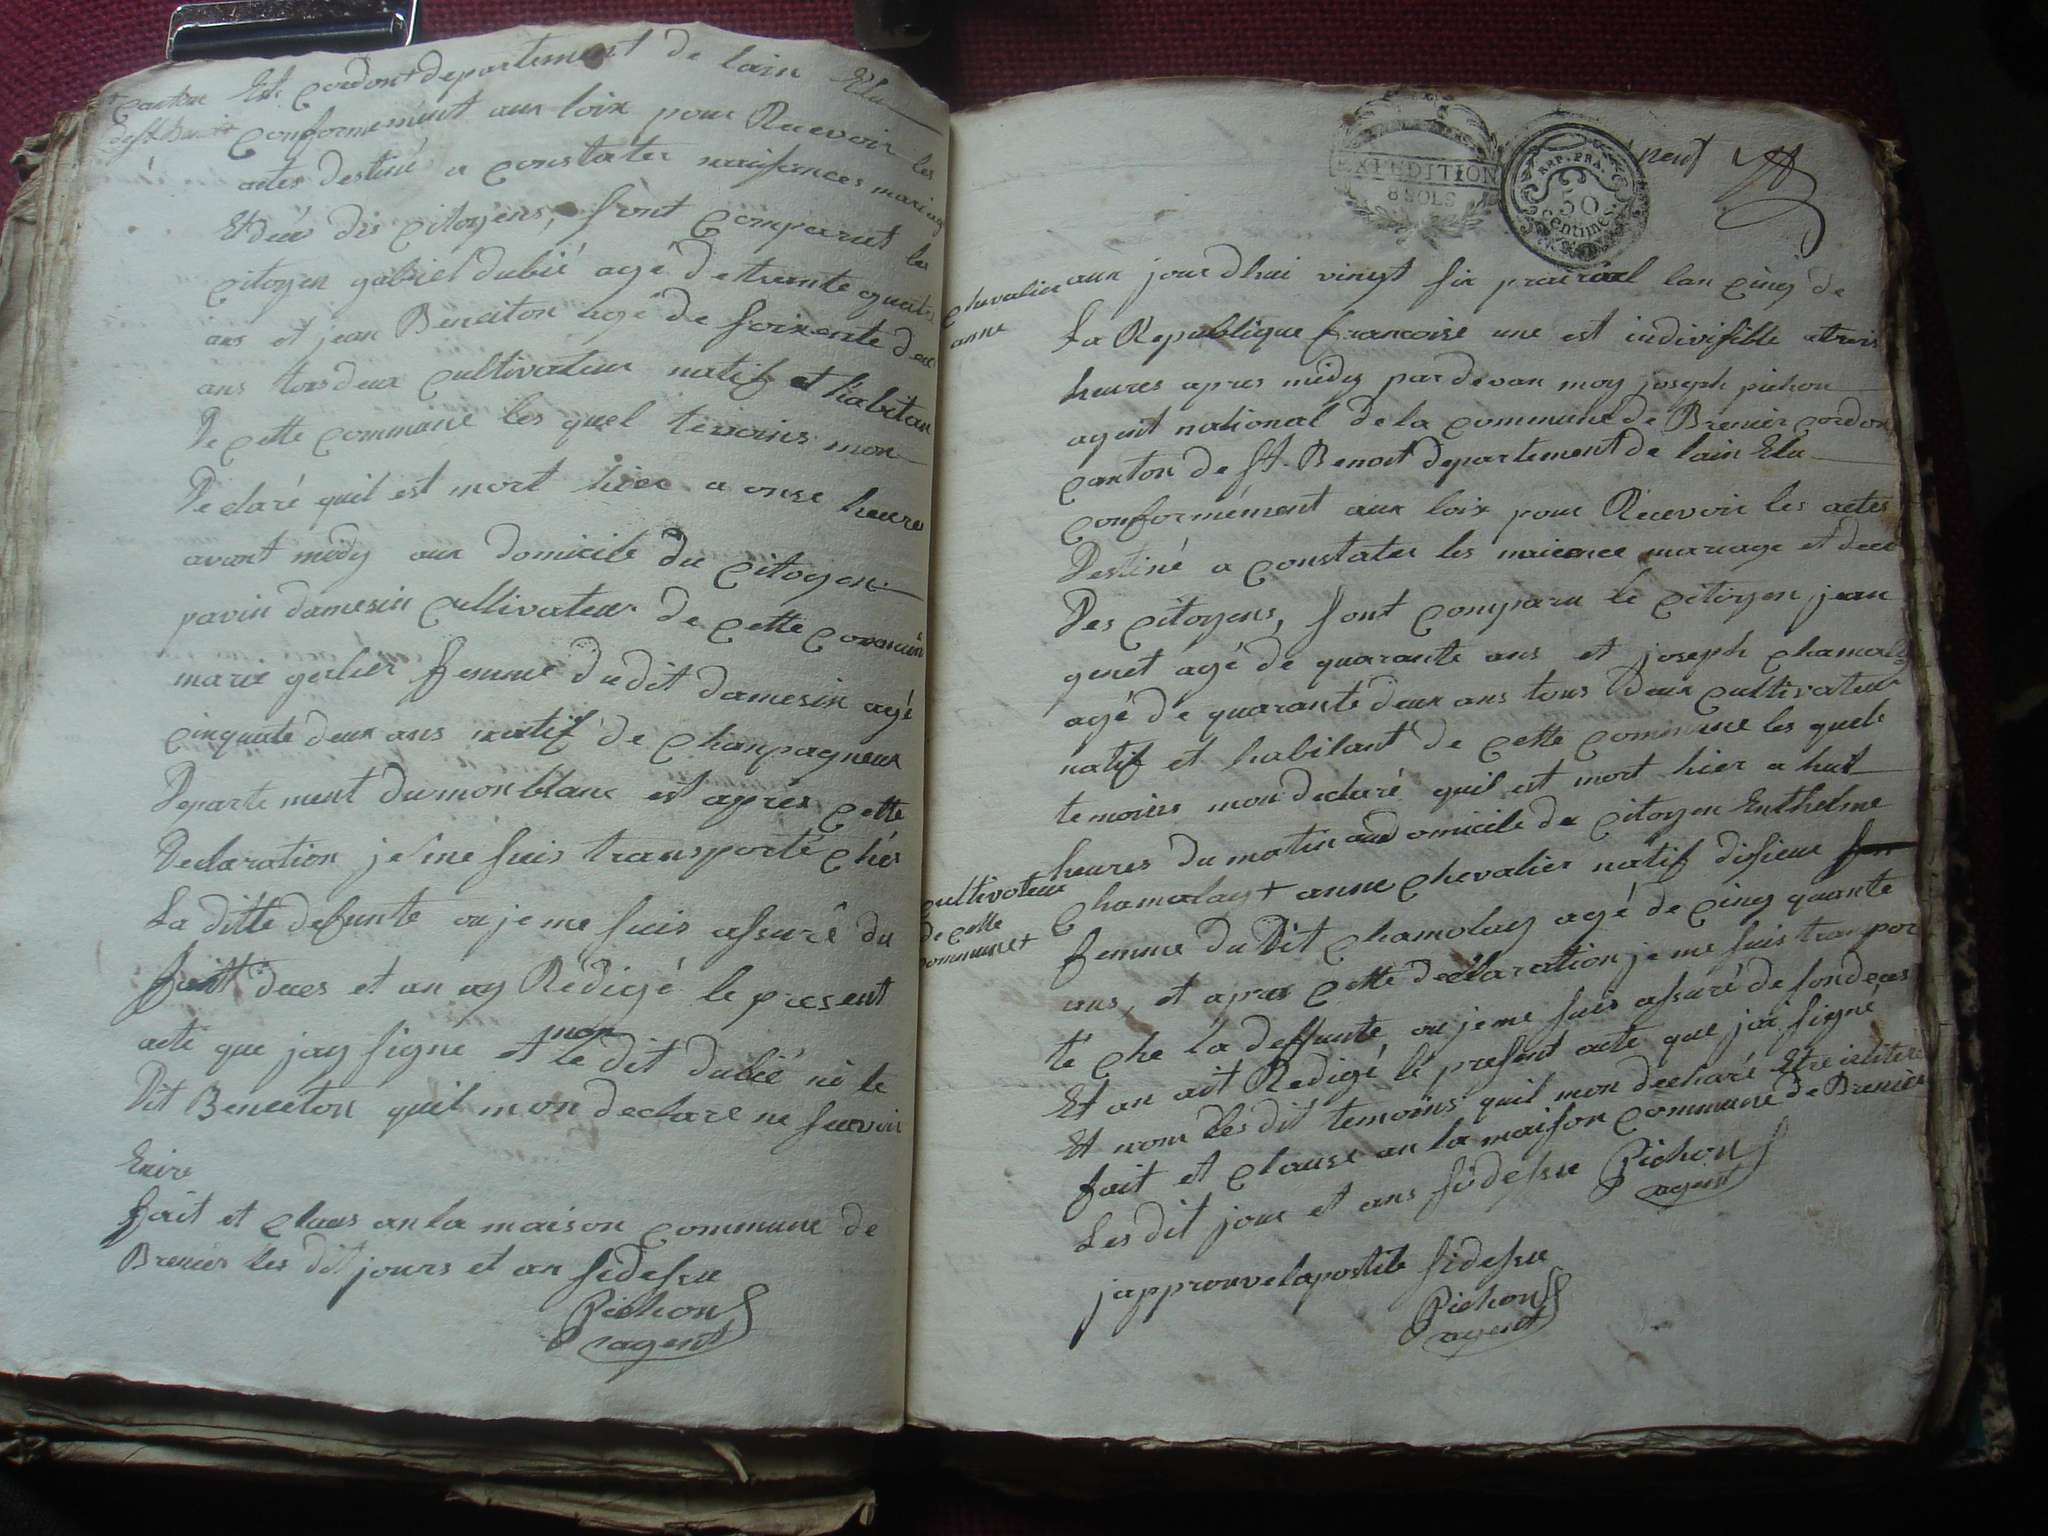 canton
de st Benoit
Et cordont departement de lain Elu
conformement aux loix pour Recevoir les
actes destiné a constater naissances mariag
Et deces des citoyens, sont comparut le
citoyen gabriel dubié agé de trante quatr
ans et jean Beneiton agé de soixente deux
ans tous deux cultivateur natif et habitan
De cette commune les quel temoins mon
Declaré quil est mort hier a onze heure
avant midy aux domicile du citoyen
pavin damesin cultivateur de cette commun
marie gerlier femme du dit damesin agé
cinquate deux ans natif de chanpagneux
Departement du mon blanc est aprés cette
Declaration je me suis transporté chés
La ditte defunte ou je me suis assuré du
suit dices et an ay Rédigé le present
acte que jay signé et non le dit dubié ni le
Dit Beneeton quil mon declare ne scavoir
Enire
fait et claus an la maison commune de
Brenier les dit jours et an sidessu
Pichon
agent
EXPEDITION
8 SOLS
REP. FRA.
50
centimes
neuf
chevalier
anne
aux jourdhui vingt six prairial lan cinq de
La Republique francoise une est indivisible a trois
heures apres midy pardevan moy joseph pichon
agent national de la commune de Brenier cordon
canton de st. Benoit departement de lain Elu
conformément aux loix pour Recevoir les actes
Destiné a constater les naicence mariage et dece
Des citoyens, sont comparu le citoyen jean
genet agé de quarante ans et joseph chamolay
agé de quarante deux ans tous deux cultivateur
natif et habitant de cette commune les quels
temoins mon declaré quil est mort hier a huit
heures du matin aux domicile du citoyen Enthelme
chamolay + anne chevalier natif disieux
cultivateur
de cette
commune +
femme du Dit chamolay agé de cinq quante
ans, et apres cette declaration je me suis tranpor
té che la deffunte ou je me suis assuré de son deces
Et an ait Redigé le present acte que jai signé
Et nom les dit temoins quil mon declaré Etre ieliteré
fait et clause an la maison commune de Brenier
Les dit jour et ans sidessu Pichon
agent
japprouve lapostile sidessu
Pichon
agent